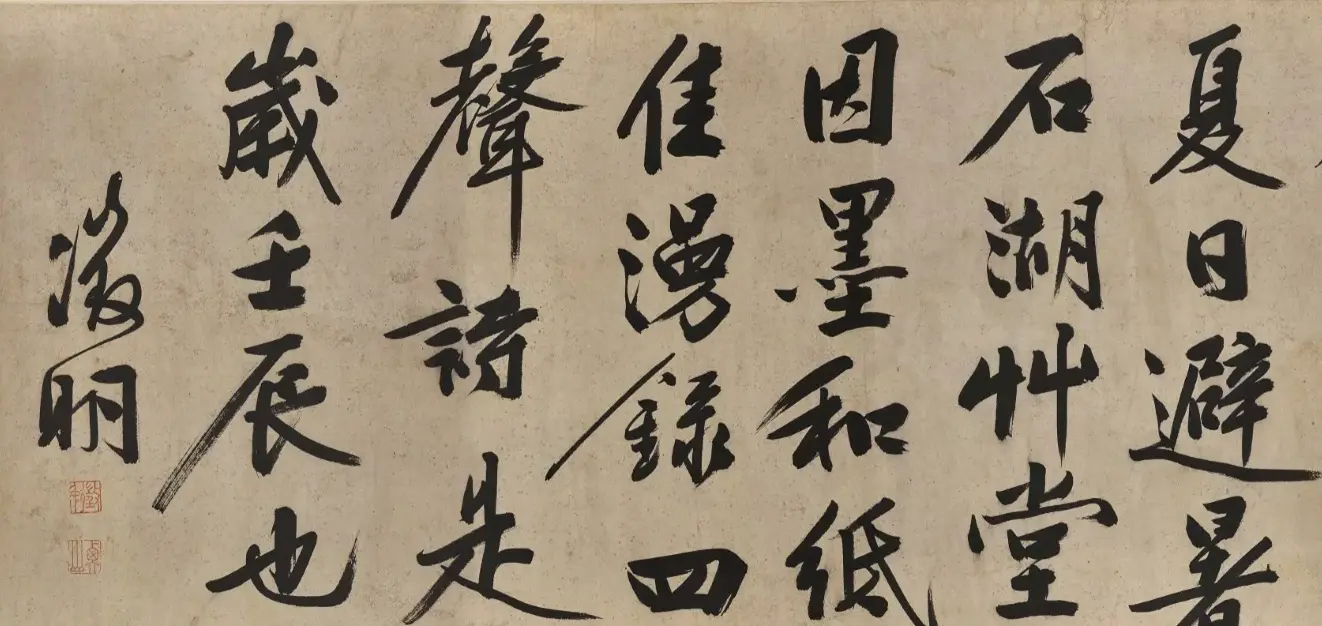 夏日避暑
石湖艸堂
因墨和紙
佳漫錄四
聲詩是
歲壬辰也
徵明